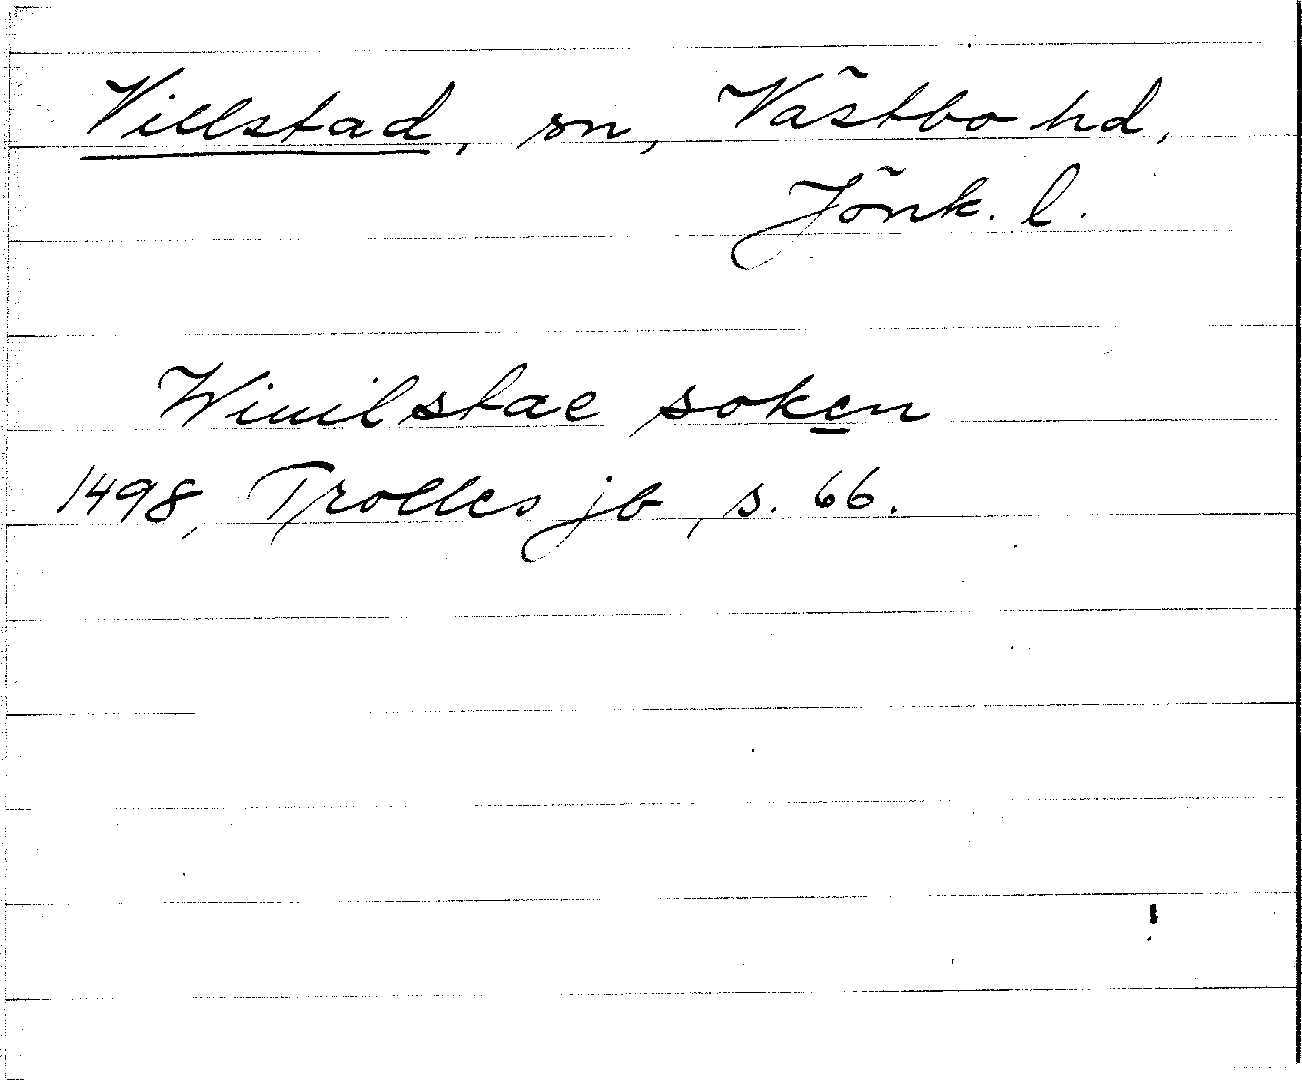 Villstad, sn, Västbo hd,
Jönk. l.
Winilstae soken
1498, Trolles jb, s. 66.